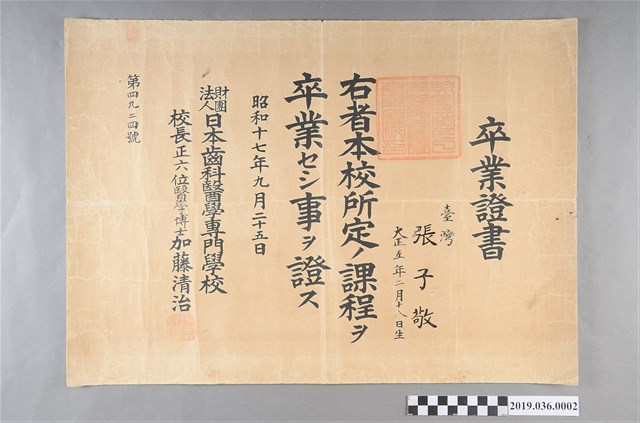 卒業證書
臺灣
張子敬
大正五年二月十八日生
右者本校所定ノ課程ヲ
卒業セシ事ヲ證ス
昭和十七年九月二十五日
財團法人日本齒科醫學專門學校
校長正六位醫學博士加藤清治
第四九二四號
2019.036.0002